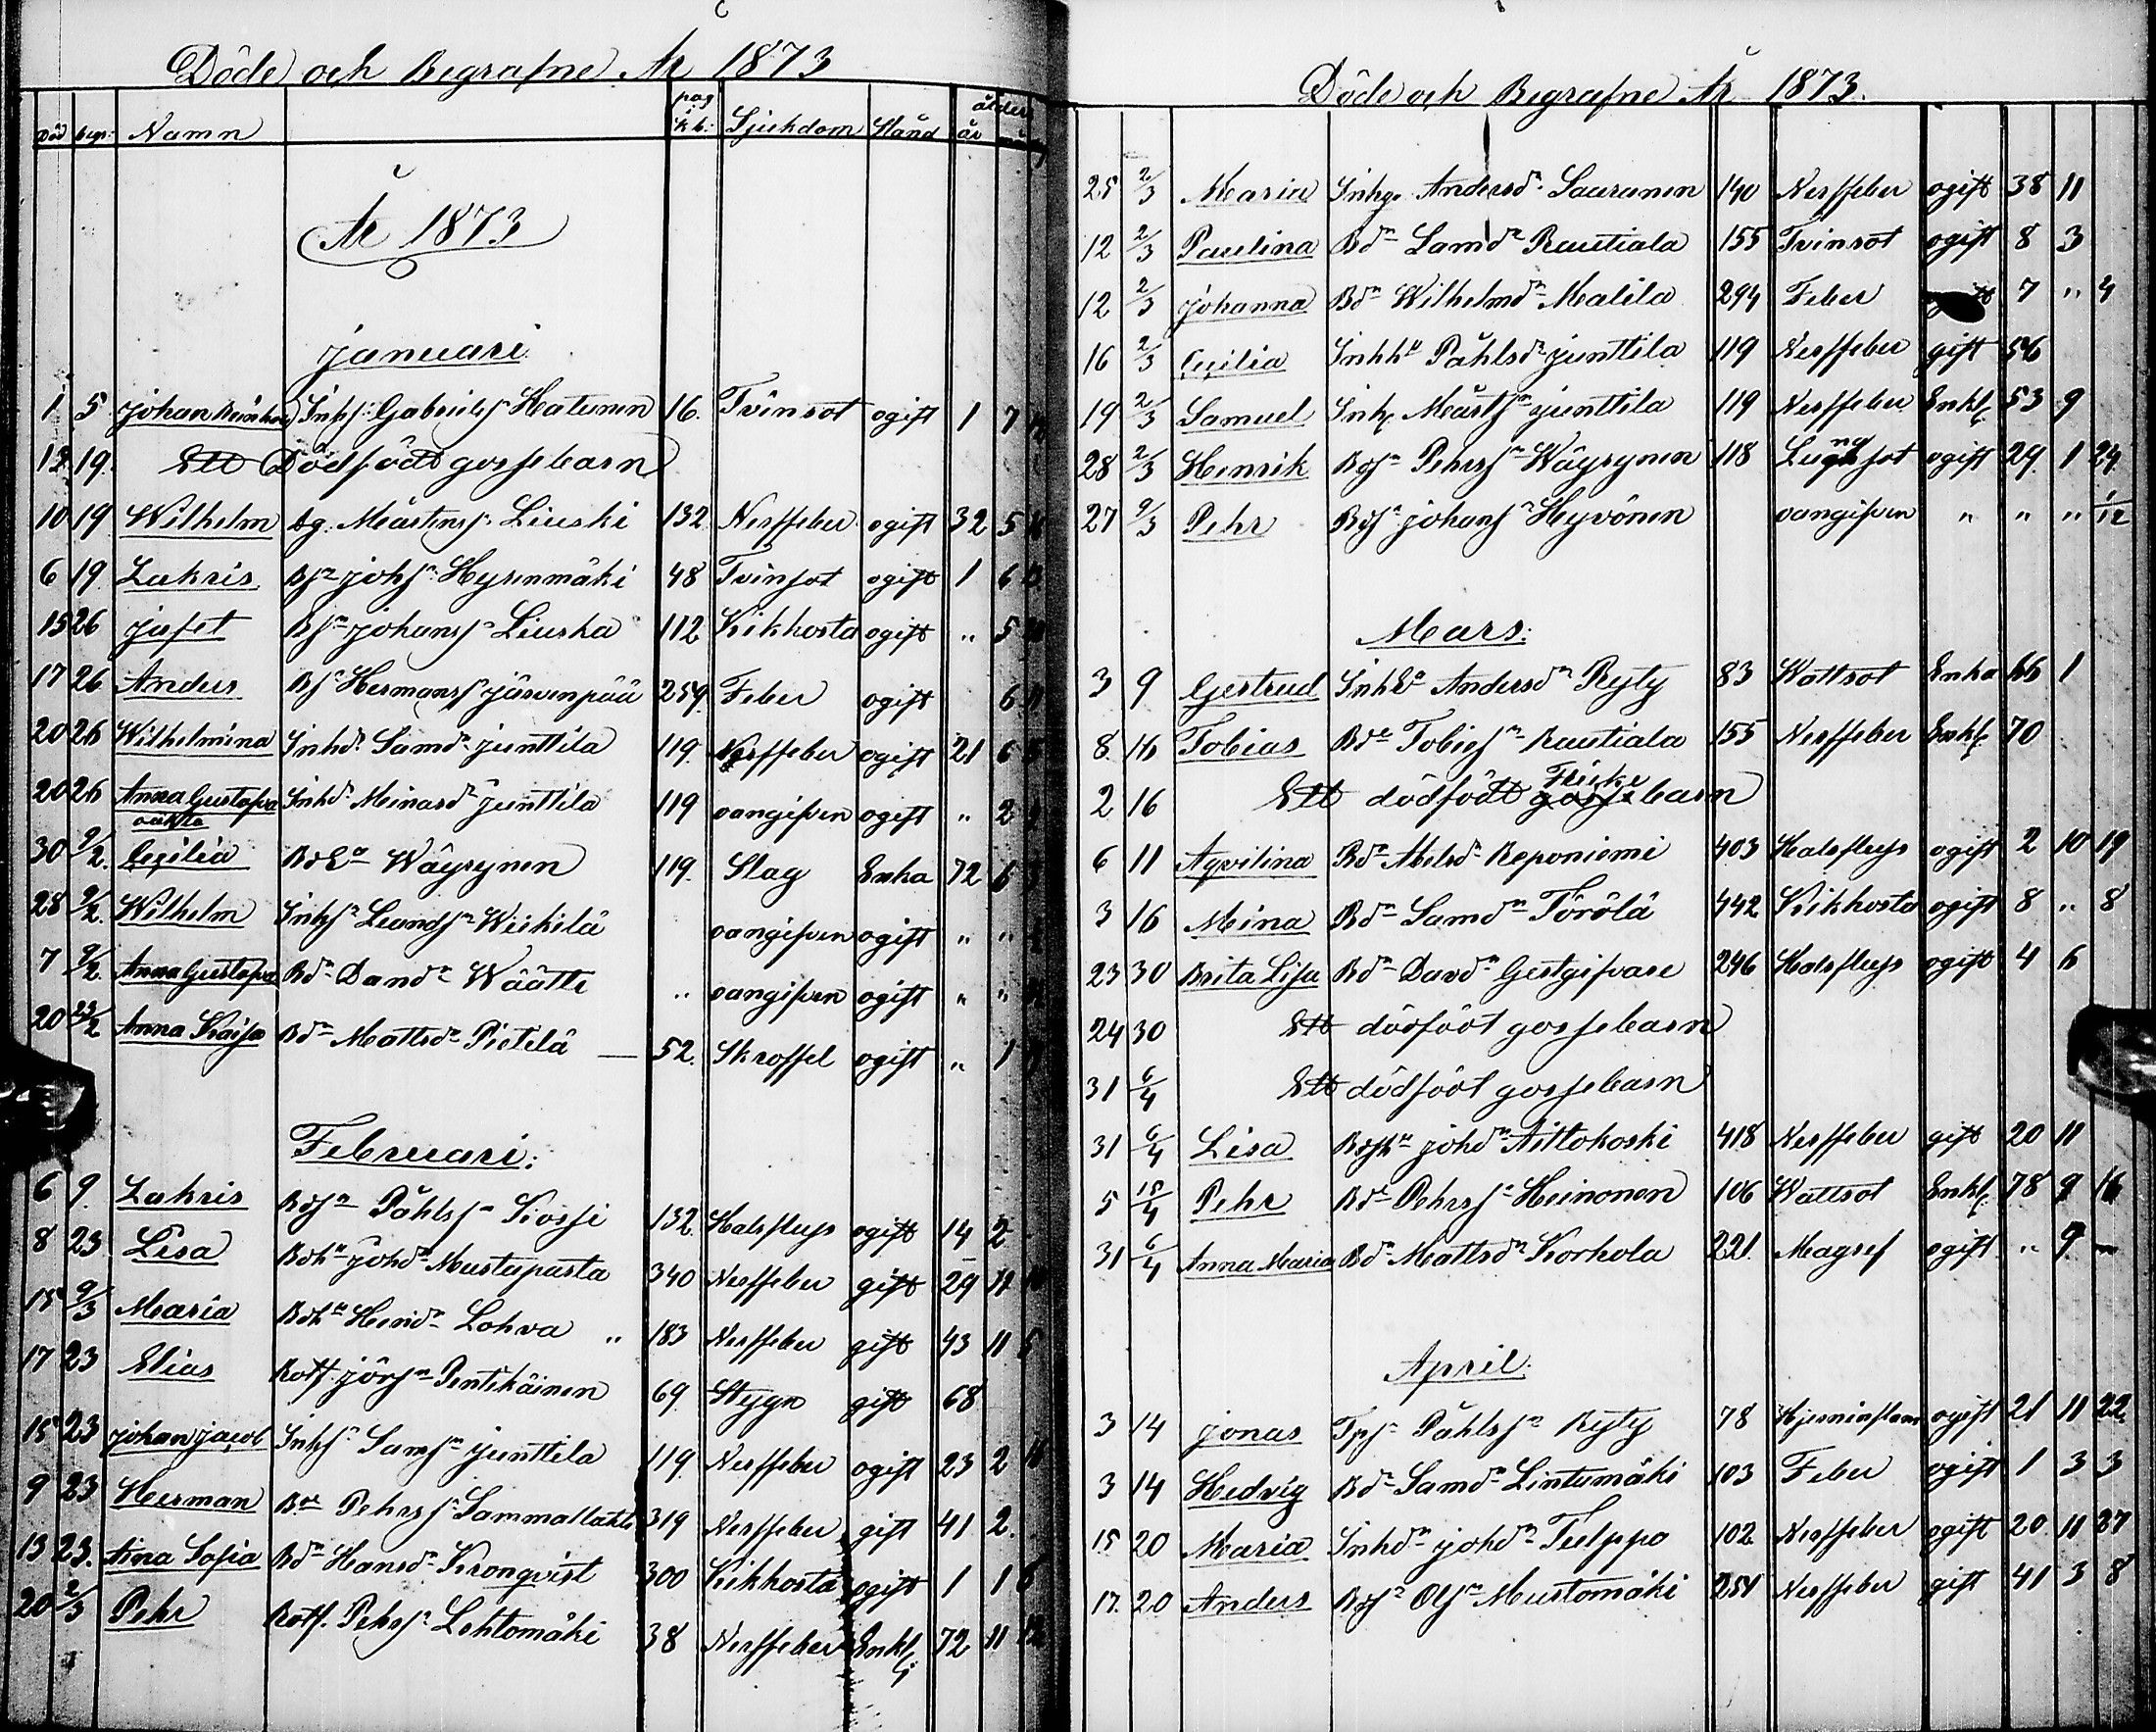 Döde och Begrafne År 1873
Död begr: Namn pag i k.b: Sjukdom Stånd ålder år
År 1873
Januari
1 5 Johan Inhs: Gabrielss Hatunen 16. Tvinsot ogift 1 7
12 19. Ett Dödfödt gossebarn
10 19 Wilhelm Dg. Mårtenss: Liuski 132 Nerffeber ogift 32 5
6 19. Zakris Bsn Johss: Hyrenmäki 48 Tvinsot ogift 1 6
15 26 Jafet Bsn Johanss Liuska 112 Kikhosta ogift „ 5
17 26 Anders Bsn Hermanss Järvenpää 259. Feber ogift 6
20 26 Wilhelmina Inhd. Samdr Junttila 119. Nerffeber ogift 21 6
20 26 Anna Gustafva oäkta Inhd. Meinardr Junttila 119 oangifven ogift „ 2
30 9/2. Cecilia BdEa Wäyrynen 119. Slag Enka 72 6
28 9/2. Wilhelm Inhsn Leandsn Wiikilä oangifven ogift „ „
7 9/2. Anna Gustafva Bdr Davdr Wäätti „ oangifven ogift „ „
20 23/2 Anna Kaisa Bdr Mattsdr Pietilä — 52. Skroffel ogift „ 1
Februari:
6 9. Zakris Bdsn Påhlssn Kossi 132. Halsflyss ogift 14 2
8 23 Lisa Bdhu Johdr Mustaparta 340 Nerffeber gift 29 11
15 9/3 Maria Bdhu Heindr Lohva „ 183 Nerffeber gift 43 11 5
17 23 Elias Rotf. Jörsn Pentikäinen 69. Stygn gift 68
15 23 Johan Jacob Inhsn Samsn Junttila 119. Nerffeber ogift 23 2
9 23 Herman Bde Pehrssn Sammallahti 319 Nerffeber gift 41 2.
13 23. Aina Sofia Bdr Hansdr Kronqvist 300 Kikhosta ogift 1 1 6
20 2/3 Pehr Rotf. Pehrsn Lehtomäki 38 Nerffeber Enkl: 72 11
Döde och Begrafne År 1873.
25 2/3 Maria Inhp. Andersdr Saaranen 140 Nerffeber ogift 38 11
12 2/3 Paulina Bdr Samdr Rautiala 155 Tvinsot ogift 8 3
12 2/3 Johanna Bdr Wilhelmdr Malila 294 Feber 7 „ 4
16 2/3 Cecilia Inhhu Påhlsdr Junttila 119 Nerffeber gift 56
19 2/3 Samuel Inh. Mårtssn Junttila 119 Nerffeber Enkl: 53 9
28 2/3 Henrik Bdsn Pehrssn Wäyrynen 118 Lungsot ogift 29. 1 24
27 9/3 Pehr Bdsn Johanssn Hyvönen oangifven „ „ „ 1/12
Mars:
3 9 Gertrud InhEa Andersdr Ryty 83 Wattsot Enka 66 1
8. 16 Tobias Bde Tobiessn Rautiala 155 Nerffeber Enkl: 70
2 16 Ett dödfödt Flickebarn
6 11 Aqvilina Bdr Abelsdr Reponiemi 403 Halsflyss ogift 2 10 19
3 16 Mina Bdr Samdr Törölä 442 Kikhosta ogift 8 „ 8
23 30 Brita Lisa Bdr Davdr Gestgifvare 246 Halsflyss ogift 4 6
24 30 Ett dödfödt gossebarn
31 6/4 Ett dödfödt gossebarn
31 6/4 Lisa Bdshu Johdr Aittokoski 418 Nerffeber gift 20 11
5 15/4 Pehr Bde Pehrssn Heinonen 106 Wattsot Enkl: 78 9 16
31 6/4 Anna Maria Bdr Mattsdr Korhola 221. Magref ogift „ 9 —
April.
3 14 Jonas Tpsn Påhlssn Ryty 78 Hjerninflam ogift 21 11 22
3 14 Hedvig Bdr Samdr Lintumäki 103 Feber ogift 1 3 3
15 20 Maria Inhdr Johdr Tulppo 102 Nerffeber ogift 20. 11 27
17. 20 Anders Bdsn Olssn Mustomäki 251 Nerffeber gift 41 3 8